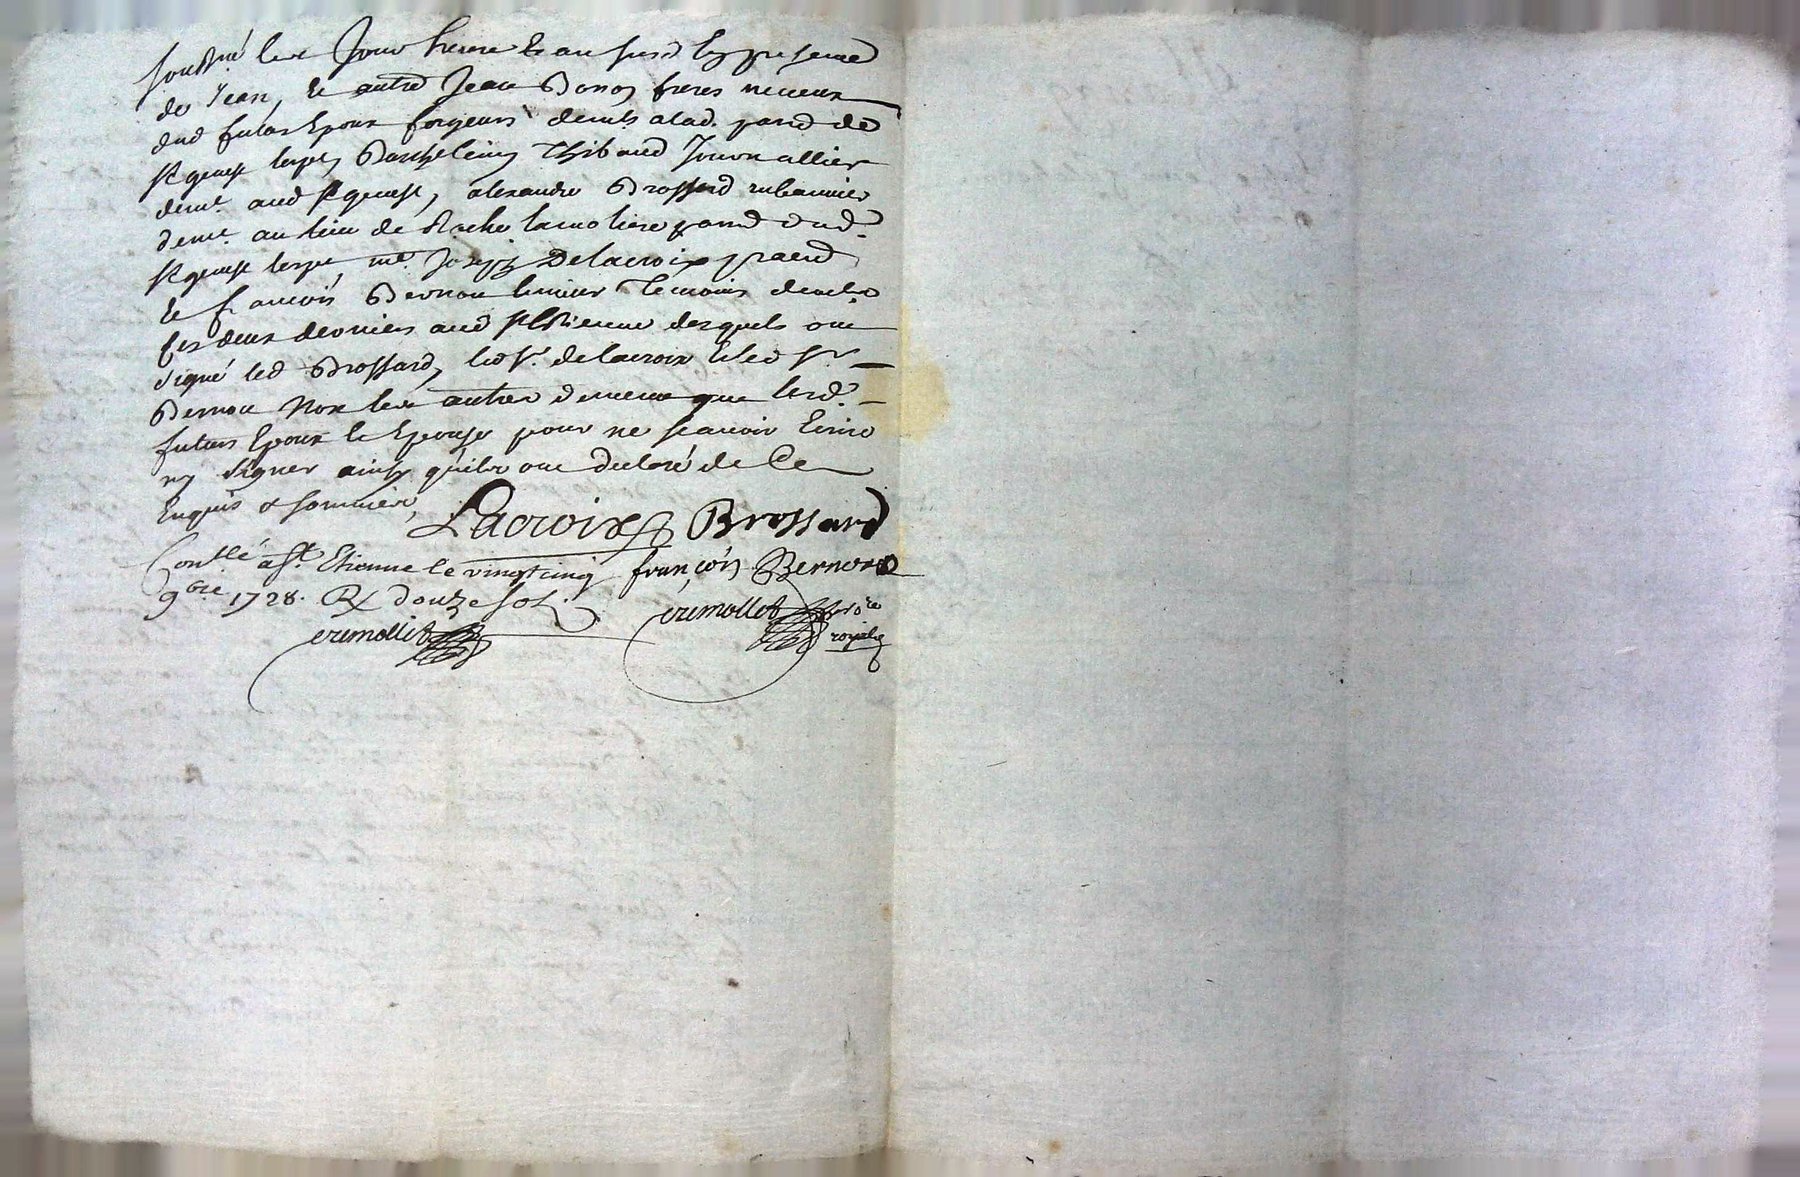 soubsné les Jour heure & an susd en presence
de Jean, & autre Jean Bonoy freres neveux
dud futur Epoux forgeurs demts a lad. parr de
St genest lerpt, Barthelemy Thibaud Journallier
demt. aud St genest, alexandre Brossard rubannier
demt. au lieu de Roche lamoliere parr dud.
St genest lerpt, me. Joseph Delacroix praticd
& francois Bernou temoins demts
les deux derniers aud St Etienne desquels ont
signé led Brossard, led sr. delacroix & led sr.
Bernou Non les autres de meme que lesd.
futurs Epoux & Epouse pour ne scavoir Ecrire
ny signer ainsy qu'ils ont declaré de Ce
Enquis & sommés,
Lacroix Brossard
Conllé a St. Etienne le vingt cinq françois Bernou
9bre 1728. Rx douze sols
crimollet crimollet nore
royal